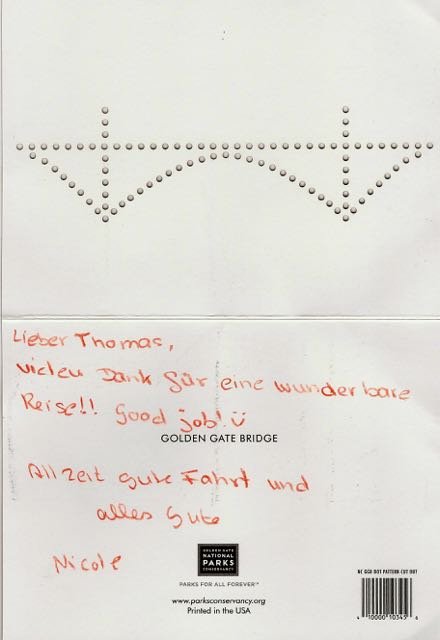 Lieber Thomas,
vielen Dank für eine wunderbare
Reise!! Good job! ü
GOLDEN GATE BRIDGE
Allzeit gute Fahrt und
alles Gute
Nicole
GOLDEN GATE
NATIONAL
PARKS
CONSERVANCY
PARKS FOR ALL FOREVER™
www.parksconservancy.org
Printed in the USA
NC GGB DOT PATTERN-CUT OUT
4 10000 10345 6